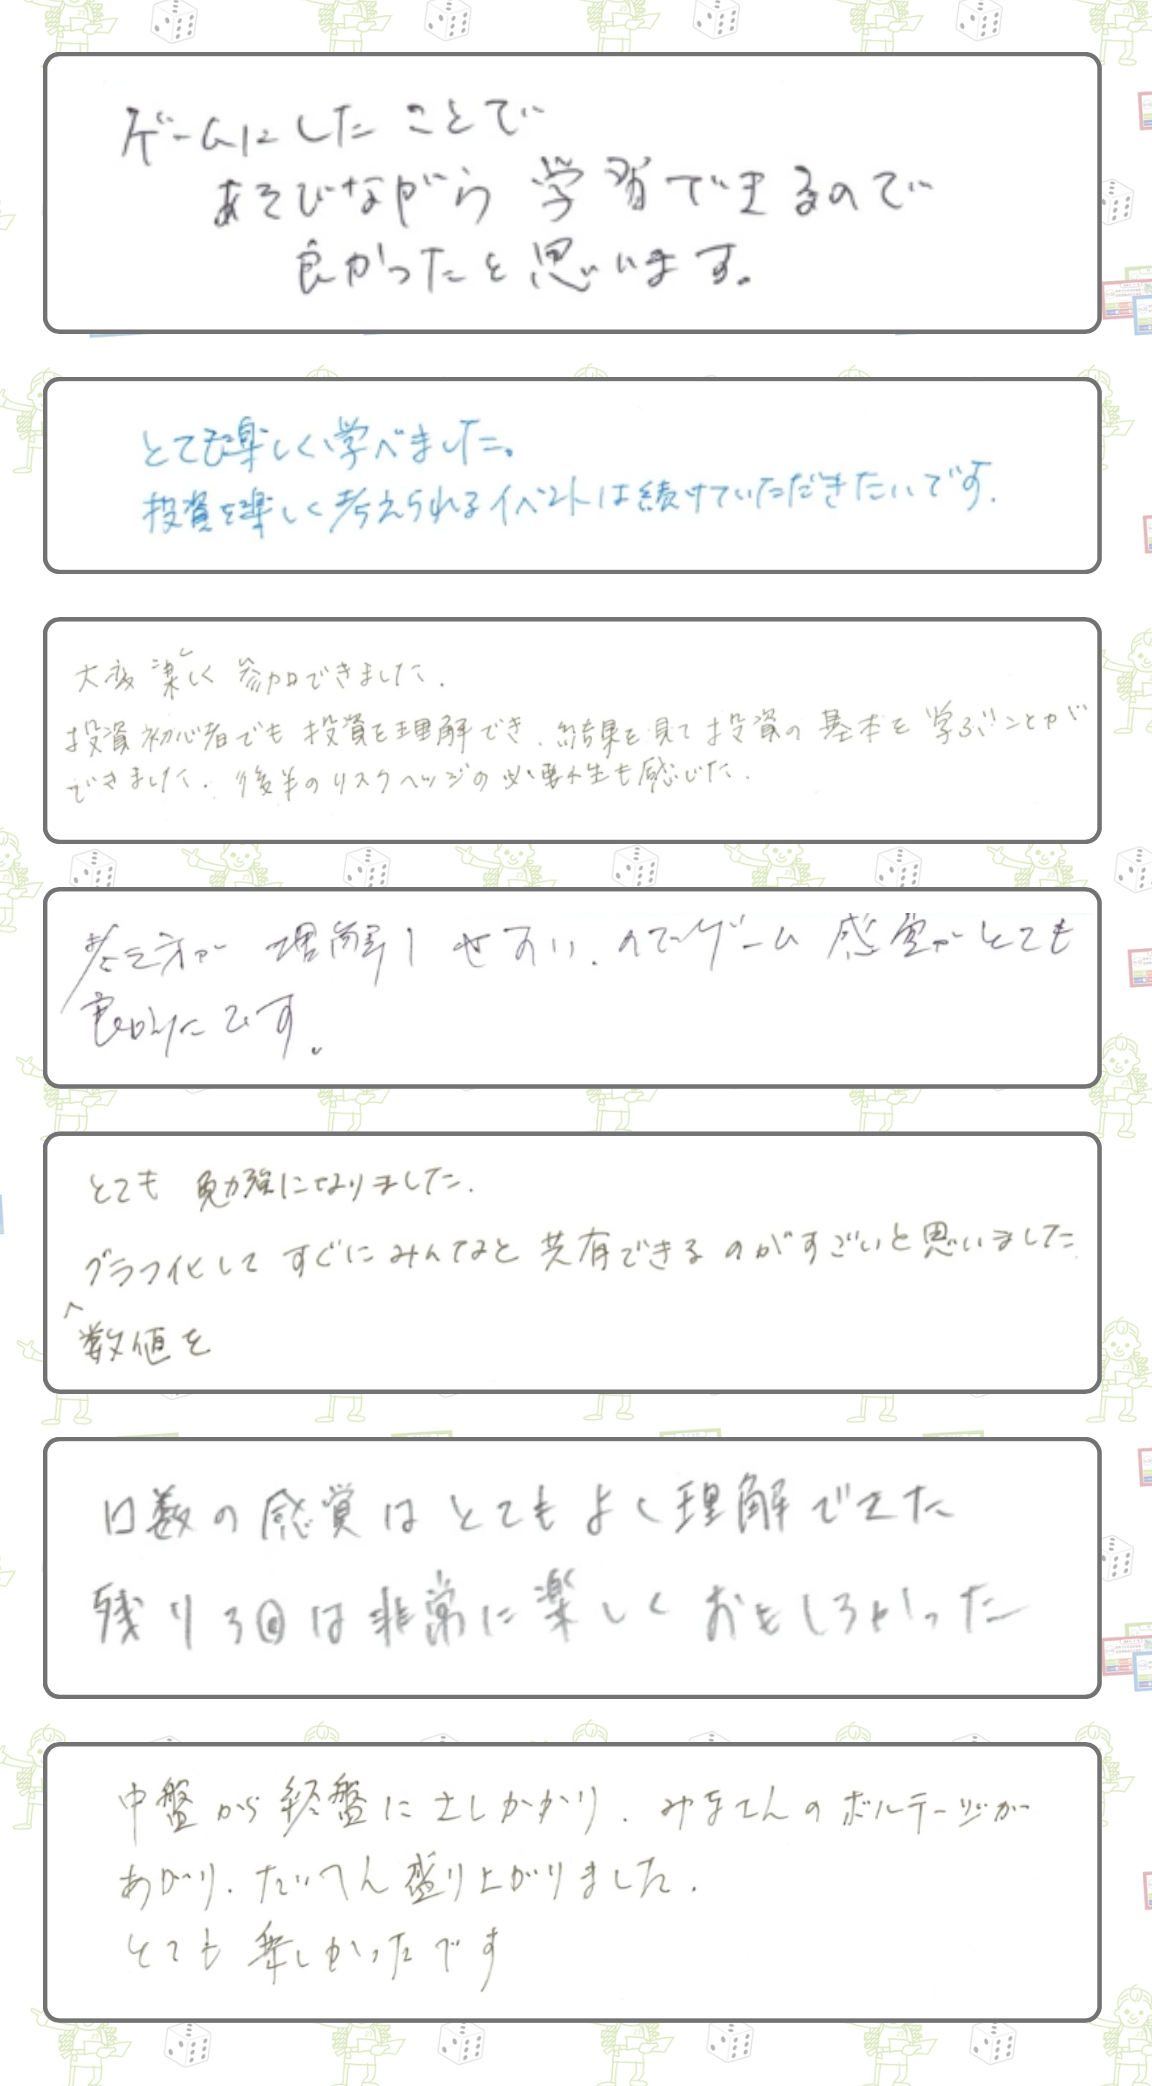 ゲームにしたことで
あそびながら学習できるので
良かったと思います。
とても楽しく学べました。
投資を楽しく考えられるイベントは続けていただきたいです.
大変楽しく参加できました.
投資初心者でも投資を理解でき、結果を見て投資の基本を学ぶことが
できました. 後半のリスクヘッジの必要性も感じた.
考え方が理解しやすい.のでゲーム感覚がとても
良かったです.
とても勉強になりました.
グラフ化してすぐにみんなと共有できるのがすごいと思いました
^数値を
口数の感覚はとてもよく理解できた
残り3回は非常に楽しくおもしろかった
中盤から終盤にさしかかり.みなさんのボルテージが
あがり.たいへん盛り上がりました.
とても楽しかったです